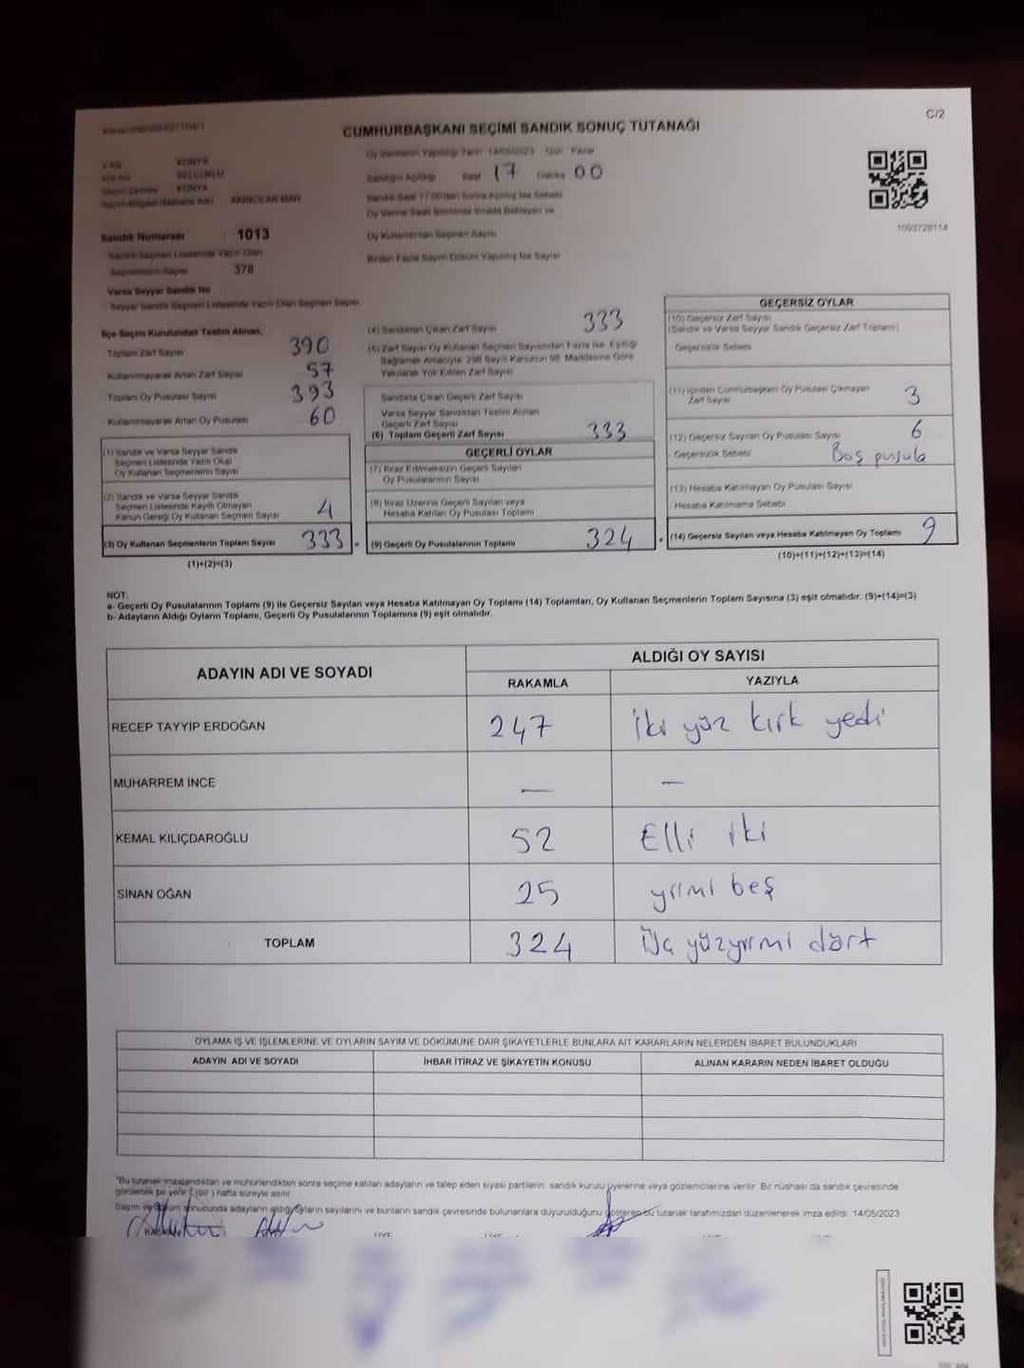 C/2
CUMHURBAŞKANI SEÇİMİ SANDIK SONUÇ TUTANAĞI
Oy Verme Yapıldığı Tarih 14/05/2023 Gün Pazar
KONYA
SELÇUKLU
KONYA
AKINCILAR MAH.
Sandığın Açıldığı Saat 17 Dakika 00
Oy Kullanılan Seçmen Sayısı
Sandık Numarası : 1013
Sandık Seçmen Listesinde Yazılı Olan
Seçmenlerin Sayısı 378
Birden Fazla Sayım Döküm Yapılmış İse Sayısı
1093728114
Varsa Seyyar Sandık No
Seyyar Sandık Seçmen Listesinde Yazılı Olan Seçmen Sayısı
İlçe Seçim Kurulundan Teslim Alınan;
Toplam Zarf Sayısı 390
Kullanılmayarak Artan Zarf Sayısı 57
Toplam Oy Pusulası Sayısı 393
Kullanılmayarak Artan Oy Pusulası 60
(1) Sandık ve Varsa Seyyar Sandık
Seçmen Listesinde Yazılı Olup
Oy Kullanan Seçmenlerin Sayısı
(2) Sandık ve Varsa Seyyar Sandık
Seçmen Listesinde Kayıtlı Olmayan
Kanun Gereği Oy Kullanan Seçmen Sayısı 4
(3) Oy Kullanan Seçmenlerin Toplam Sayısı 333
(1)+(2)=(3)
(4) Sandıktan Çıkan Zarf Sayısı 333
(5) Zarf Sayısı Oy Kullanan Seçmen Sayısından Fazla İse, Eşitliği
Sağlamak Amacıyla 298 Sayılı Kanunun 98. Maddesine Göre
Yakılarak Yok Edilen Zarf Sayısı
Sandıkta Çıkan Geçerli Zarf Sayısı
Varsa Seyyar Sandıktan Teslim Alınan
Geçerli Zarf Sayısı
(6) Toplam Geçerli Zarf Sayısı 333
GEÇERLİ OYLAR
(7) İtiraz Edilmeksizin Geçerli Sayılan
Oy Pusulalarının Sayısı
(8) İtiraz Üzerine Geçerli Sayılan veya
Hesaba Katılan Oy Pusulası Toplamı
(9) Geçerli Oy Pusulalarının Toplamı 324
GEÇERSİZ OYLAR
(10) Geçersiz Zarf Sayısı
(Sandık ve Varsa Seyyar Sandık Geçersiz Zarf Toplamı)
Geçersizlik Sebebi
(11) İçinden Cumhurbaşkanı Oy Pusulası Çıkmayan
Zarf Sayısı 3
(12) Geçersiz Sayılan Oy Pusulası Sayısı 6
Geçersizlik Sebebi Boş pusula
(13) Hesaba Katılmayan Oy Pusulası Sayısı
Hesaba Katılmama Sebebi
(14) Geçersiz Sayılan veya Hesaba Katılmayan Oy Toplamı 9
(10)+(11)+(12)+(13)=(14)
NOT:
a- Geçerli Oy Pusulalarının Toplamı (9) ile Geçersiz Sayılan veya Hesaba Katılmayan Oy Toplamı (14) Toplamları, Oy Kullanan Seçmenlerin Toplam Sayısına (3) eşit olmalıdır. (9)+(14)=(3)
b- Adayların Aldığı Oyların Toplamı, Geçerli Oy Pusulalarının Toplamına (9) eşit olmalıdır.
ADAYIN ADI VE SOYADI
ALDIĞI OY SAYISI
RAKAMLA YAZIYLA
RECEP TAYYIP ERDOĞAN 247 iki yüz kırk yedi
MUHARREM İNCE — —
KEMAL KILIÇDAROĞLU 52 Elli iki
SİNAN OĞAN 25 yrimi beş
TOPLAM 324 üç yüzyirmi dört
OYLAMA İŞ VE İŞLEMLERİNE VE OYLARIN SAYIM VE DÖKÜMÜNE DAİR ŞİKAYETLERLE BUNLARA AİT KARARLARIN NELERDEN İBARET BULUNDUKLARI
ADAYIN ADI VE SOYADI İHBAR İTİRAZ VE ŞİKAYETİN KONUSU ALINAN KARARIN NEDEN İBARET OLDUĞU
"Bu tutanak imzalandıktan ve mühürlendikten sonra seçime katılan adayların ve talep eden siyasi partilerin sandık kurulu üyelerine veya gözlemcilerine verilir. Bir nüshası da sandık çevresinde
görülebilir bir yerde ( bir ) hafta süreyle asılır.
Sayım ve döküm sonucunda adayların aldığı oyların sayılarını ve bunların sandık çevresinde bulunanlara duyurulduğunu gösteren bu tutanak tarafımızdan düzenlenerek imza edildi. 14/05/2023